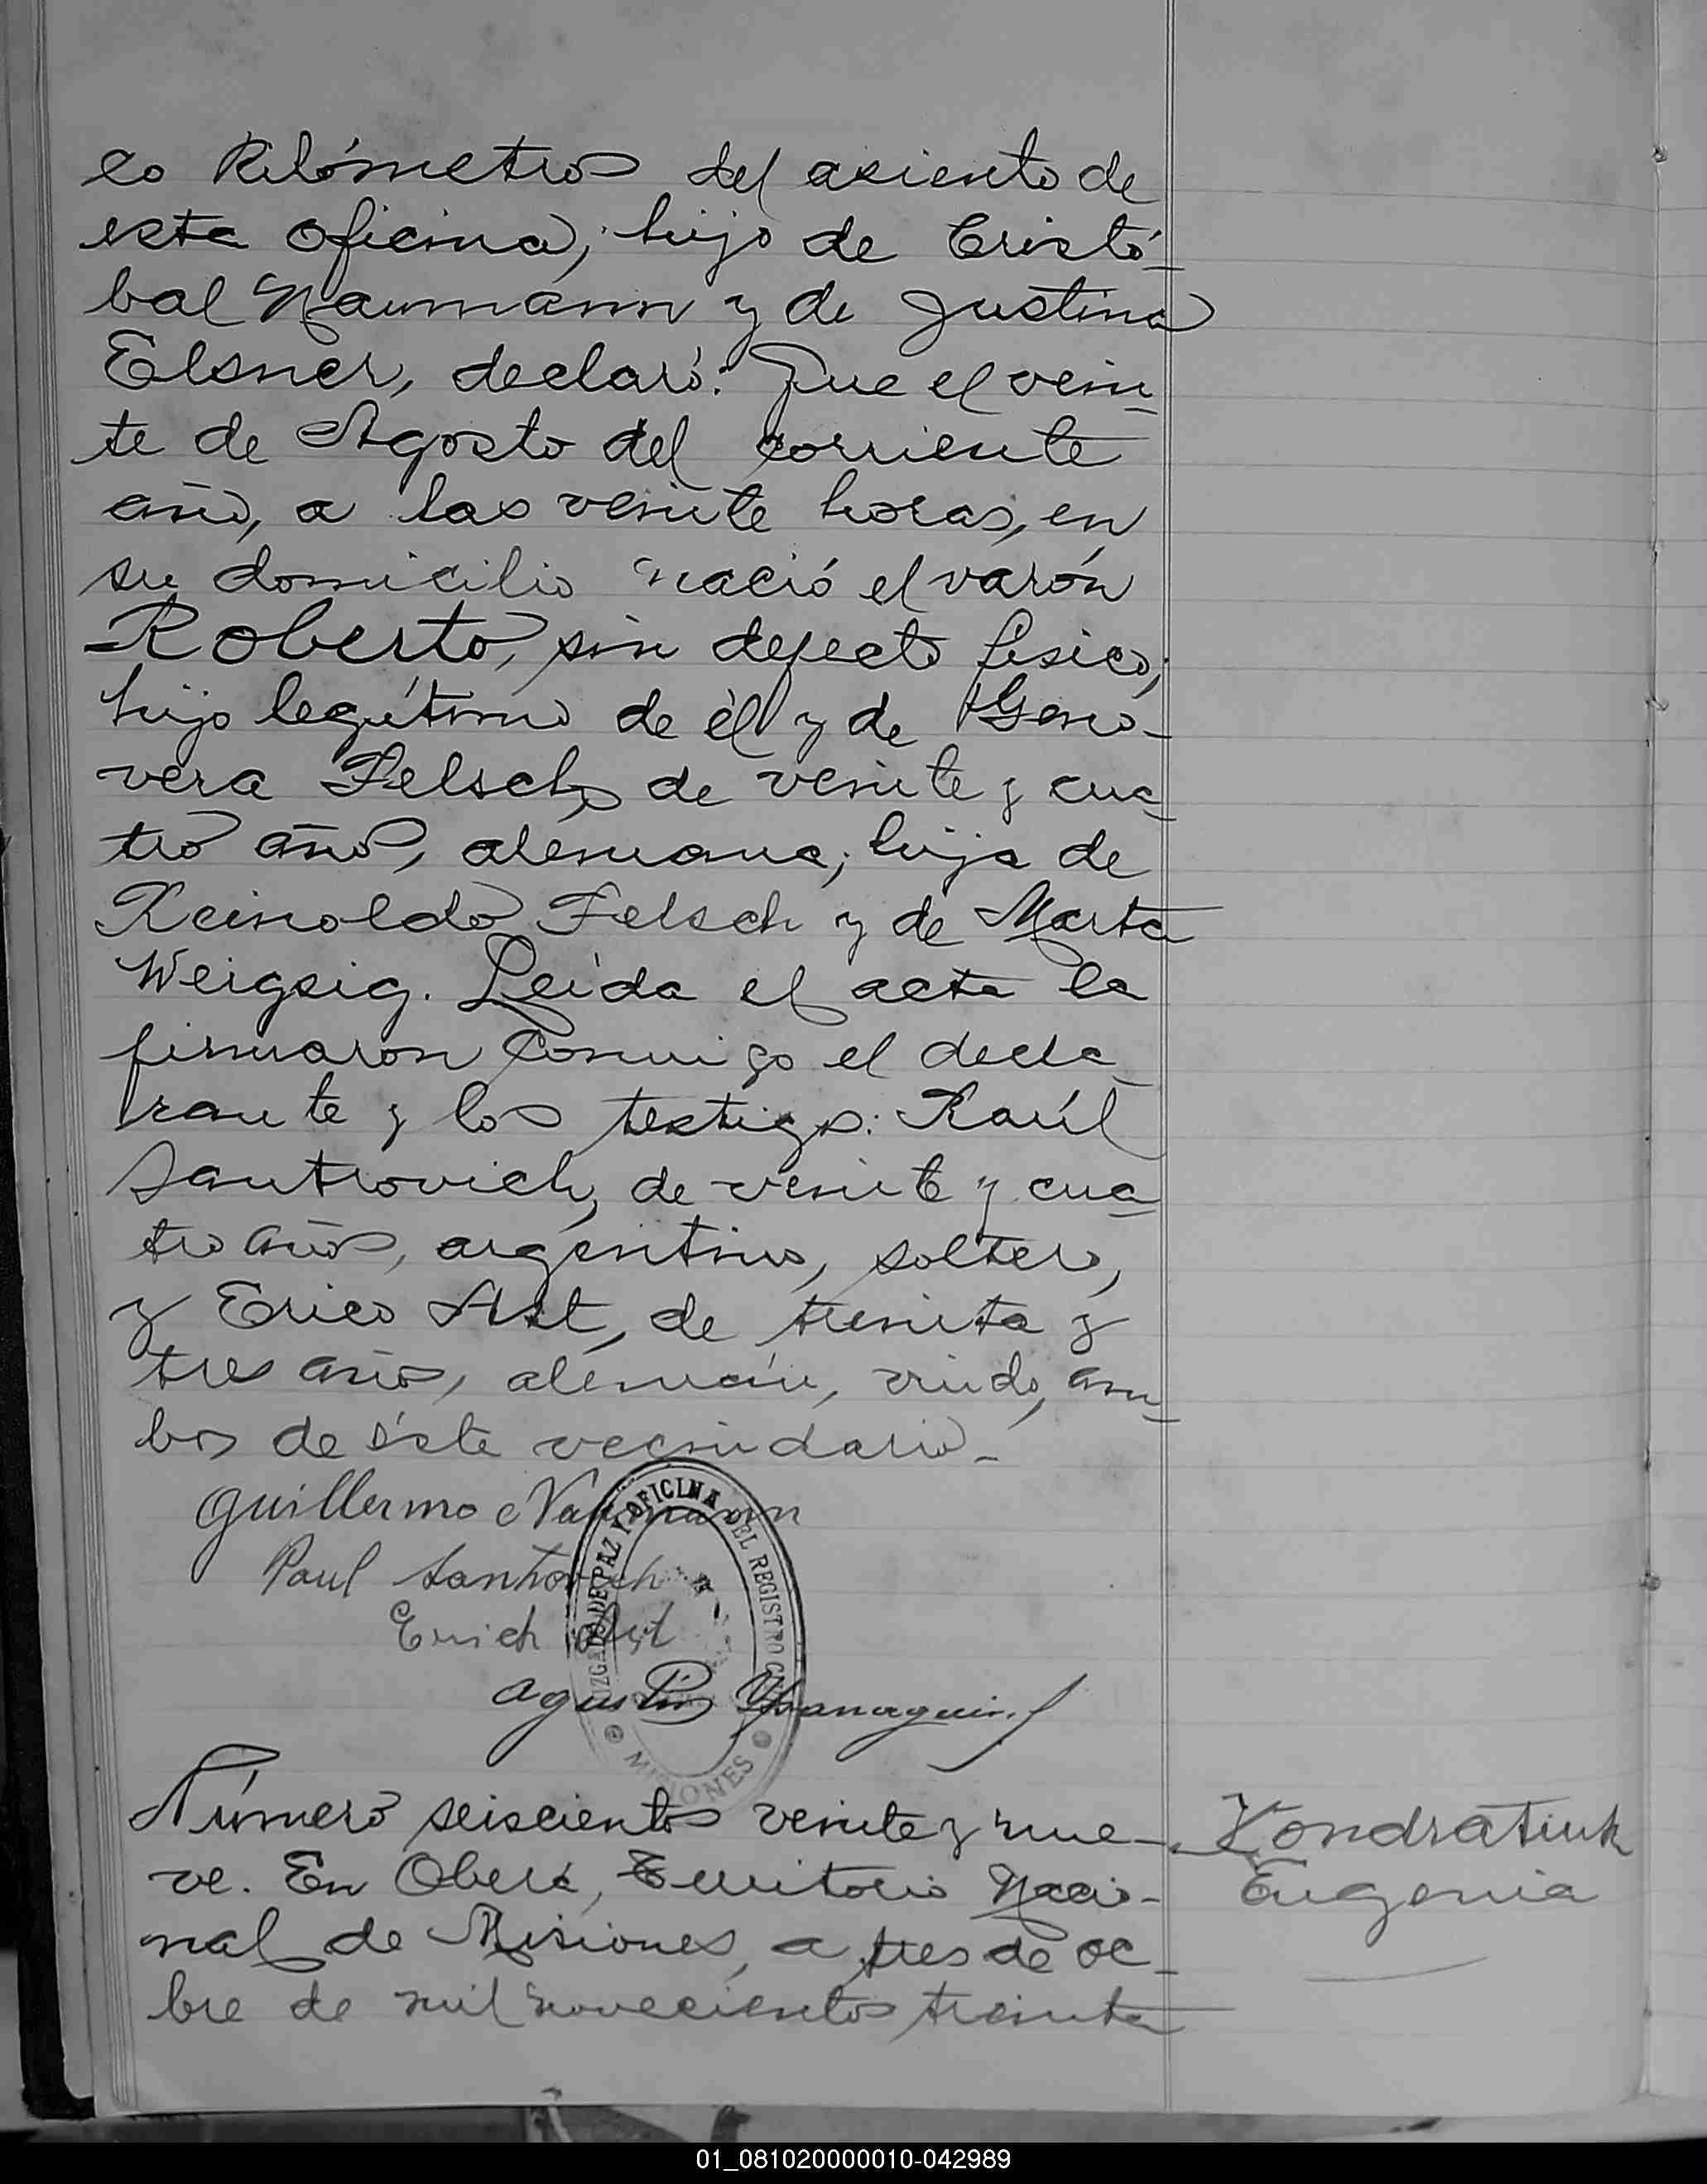 co Kilómetros del asiento de
esta oficina; hijo de Cristó-
bal Naumann y de Justina
Elsner, declaró: Que el vein-
te de Agosto del corriente
año, a las veinte horas, en
su domicilio nació el varón
Roberto, sin defecto físico;
hijo legítimo de él y de Geno-
vera Felsch, de veinte y cua-
tro años, alemana; hija de
Reinoldo Felsch y de Marta
Weigsig. Leída el acta la
firmaron conmigo el decla-
rante y los testigos: Raúl
Santrovich, de veinte y cua-
tro años, argentino, soltero,
y Erico Ast, de treinta y
tres años, alemán, viudo, am-
bos de éste vecindario.-
Guillermo Naumann
Raul Santrovich
Erich Ast
Agustin
JUZGADO DE PAZ Y OFICINA DEL REGISTRO CIVIL
MISIONES
Número seiscientos veinte y nue-
ve. En Oberá, Territorio Nacio-
nal de Misiones, a tres de oc-
bre de mil novecientos treinta
Kondratiuk
Eugenia
01_081020000010-042989